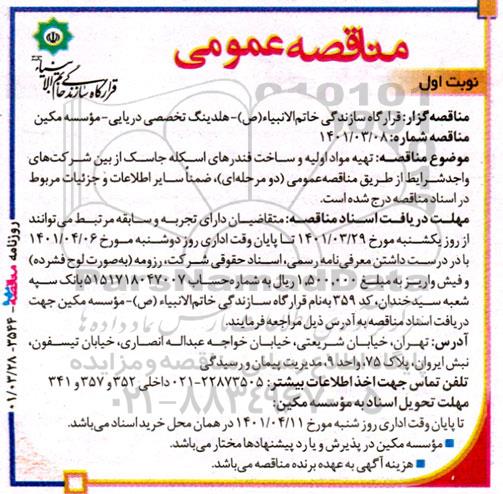 قرارگاه سازندگی خاتم الانبیاء
مناقصه عمومی
نوبت اول
مناقصه‌گزار: قرارگاه سازندگی خاتم‌الانبیاء(ص)-هلدینگ تخصصی دریایی-مؤسسه مکین
مناقصه شماره: ۱۴۰۱/۰۳/۰۸
موضوع مناقصه: تهیه مواد اولیه و ساخت فندرهای اسکله جاسک از بین شرکت‌های
واجدشرایط از طریق مناقصه‌عمومی (دو مرحله‌ای)، ضمناً سایر اطلاعات و جزئیات مربوط
در اسناد مناقصه درج شده است.
مهلت دریافت اسناد مناقصه: متقاضیان دارای تجربه و سابقه مرتبط می‌توانند
از روز یکشنبه مورخ ۱۴۰۱/۰۳/۲۹ تا پایان وقت اداری روز دوشنبه مورخ ۱۴۰۱/۰۴/۰۶
با در دست داشتن معرفی‌نامه رسمی، اسناد حقوقی شرکت، رزومه (به‌صورت لوح فشرده)
و فیش واریز به مبلغ ۱,۵۰۰,۰۰۰ ریال به شماره‌حساب ۵۱۵۱۷۱۸۰۴۷۰۰۷ بانک سپه
شعبه سیدخندان، کد ۳۵۹ به‌نام قرارگاه سازندگی خاتم‌الانبیاء (ص)-مؤسسه مکین جهت
دریافت اسناد مناقصه به آدرس ذیل مراجعه فرمایند.
آدرس: تهران، خیابان شریعتی، خیابان خواجه عبداله انصاری، خیابان تیسفون،
نبش ایروان، پلاک ۷۵، واحد ۹، مدیریت پیمان و رسیدگی
تلفن تماس جهت اخذ اطلاعات بیشتر: ۲۲۸۷۳۵۰۵-۰۲۱ داخلی ۳۵۲ و ۳۵۷ و ۳۴۱
مهلت تحویل اسناد به مؤسسه مکین:
تا پایان وقت اداری روز شنبه مورخ ۱۴۰۱/۰۴/۱۱ در همان محل خرید اسناد می‌باشد.
■ مؤسسه مکین در پذیرش و یا رد پیشنهادها مختار می‌باشد.
■ هزینه آگهی به عهده برنده مناقصه می‌باشد.
روزنامه مناقصه ۳۵۴۴-۰۱/۰۳/۲۸